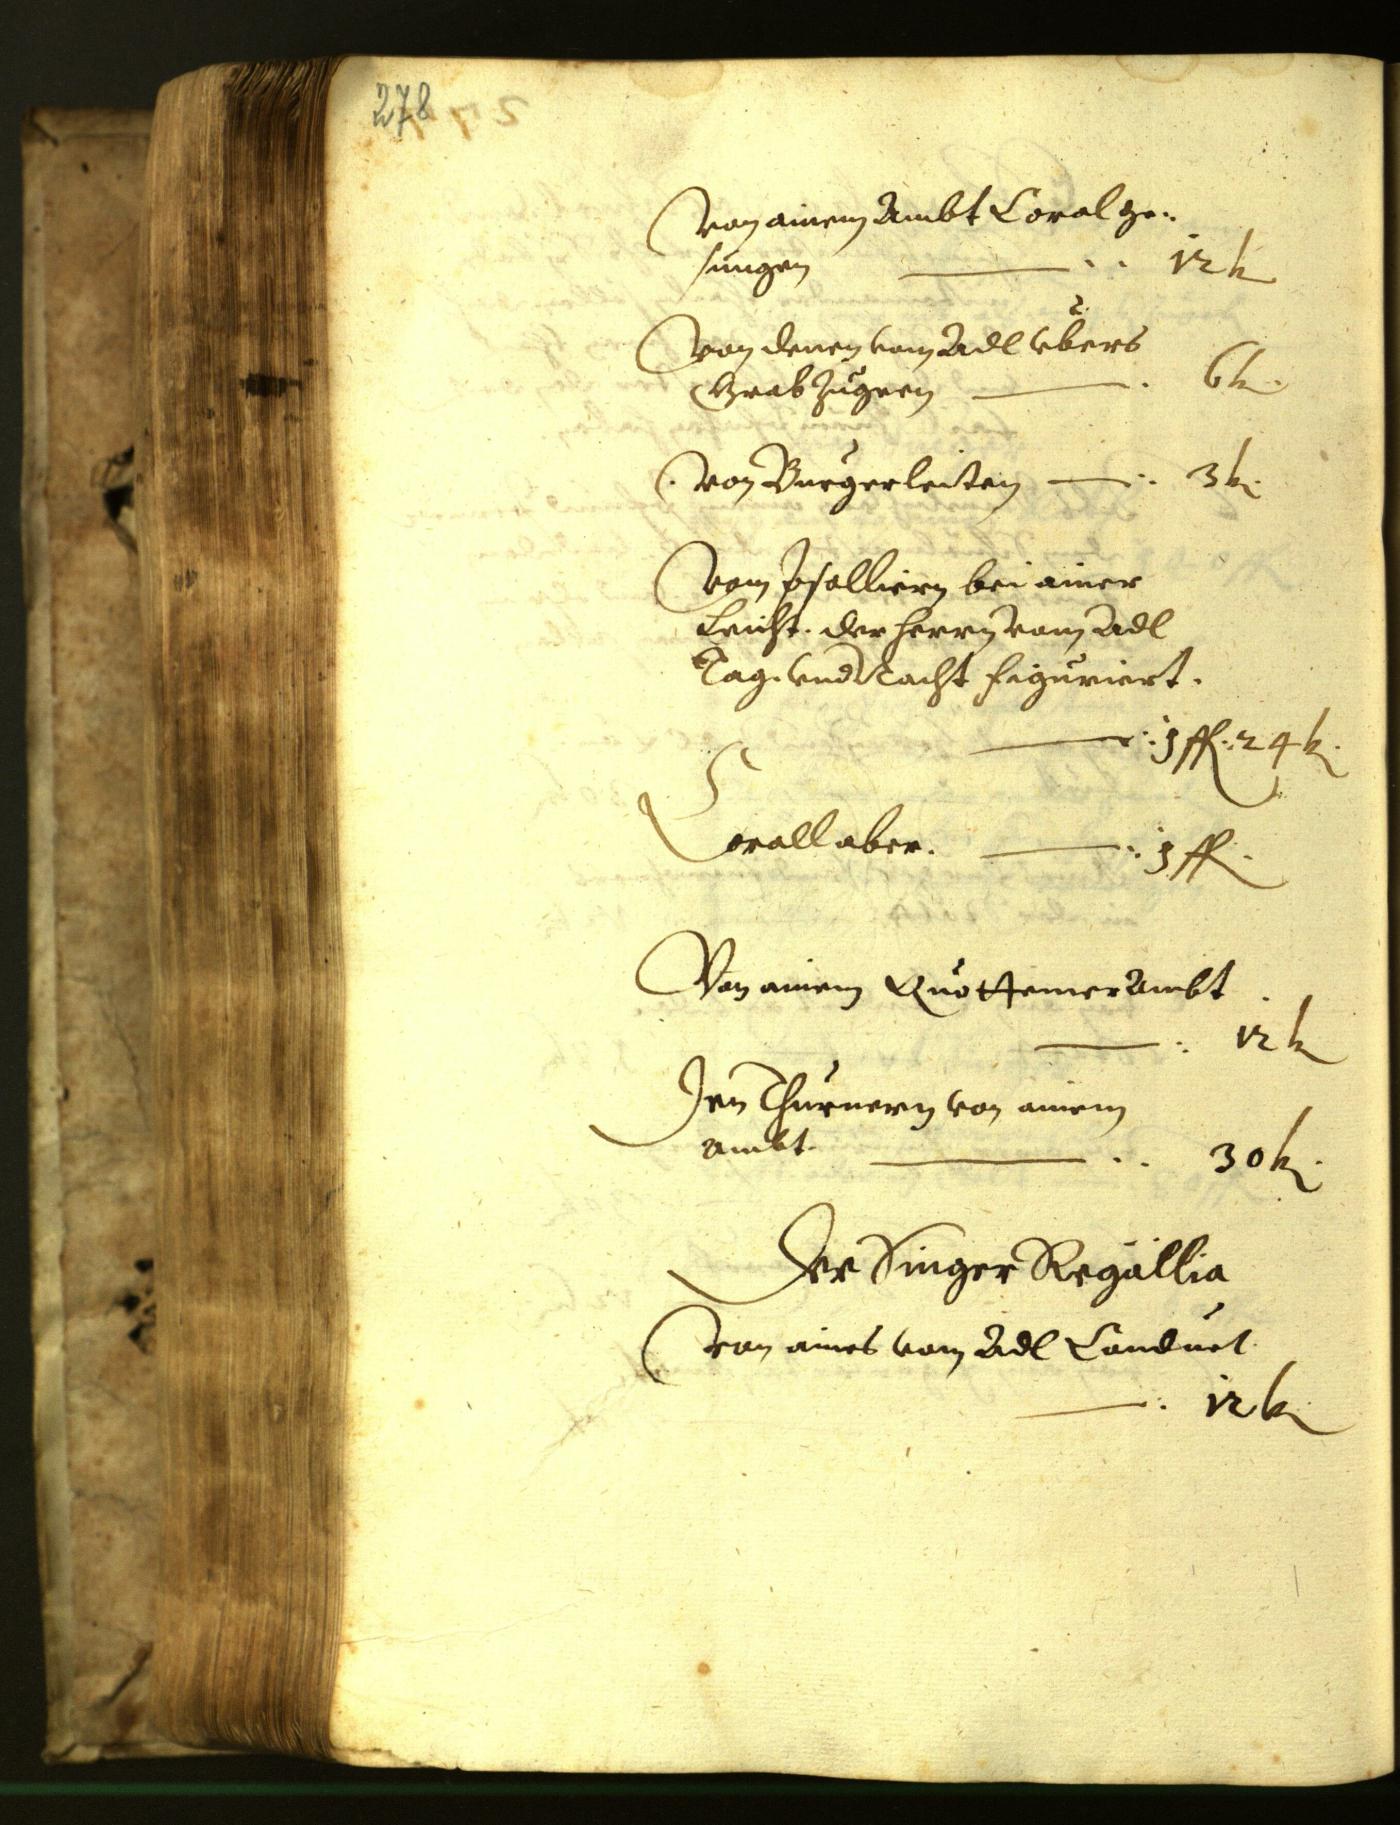 278
von ainem Ambt Coral ge-
sungen — 12 k
von denen vom Adl übers
Grab zugeen — 6 k.
von Burgerleiten — 3 k.
vom Psallieren bei ainer
Leicht. der herrn vom Adl
Tag. vnd Nacht figuriert.
— 1 fl. 24 k.
Corall aber. — 1 fl.
Von ainem Quottemer Ambt
— 12 k
Den Thurnern von ainem
ambt. — 30 k.
Der Singer Regallia
von aines vom Adl Conduct
— 12 k